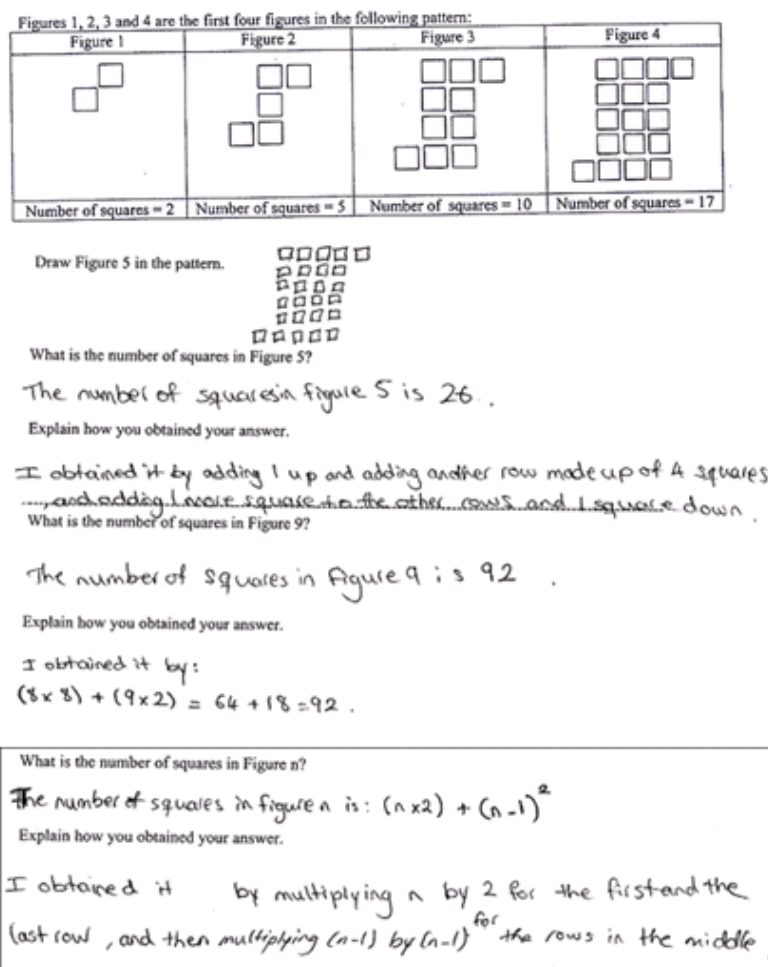 Figures 1, 2, 3 and 4 are the first four figures in the following pattern:
Figure 1 Figure 2 Figure 3 Figure 4
Number of squares = 2 Number of squares = 5 Number of squares = 10 Number of squares = 17
Draw Figure 5 in the pattern.
What is the number of squares in Figure 5?
The number of squares in figure 5 is 26.
Explain how you obtained your answer.
I obtained it by adding 1 up and adding another row made up of 4 squares
, and adding 1 more square to the other rows and 1 square down.
What is the number of squares in Figure 9?
The number of squares in figure 9 is 92.
Explain how you obtained your answer.
I obtained it by:
(8 x 8) + (9 x 2) = 64 + 18 = 92.
What is the number of squares in Figure n?
The number of squares in figure n is: (n x2) + (n-1)²
Explain how you obtained your answer.
I obtained it by multiplying n by 2 for the first and the
last row, and then multiplying (n-1) by (n-1) for the rows in the middle